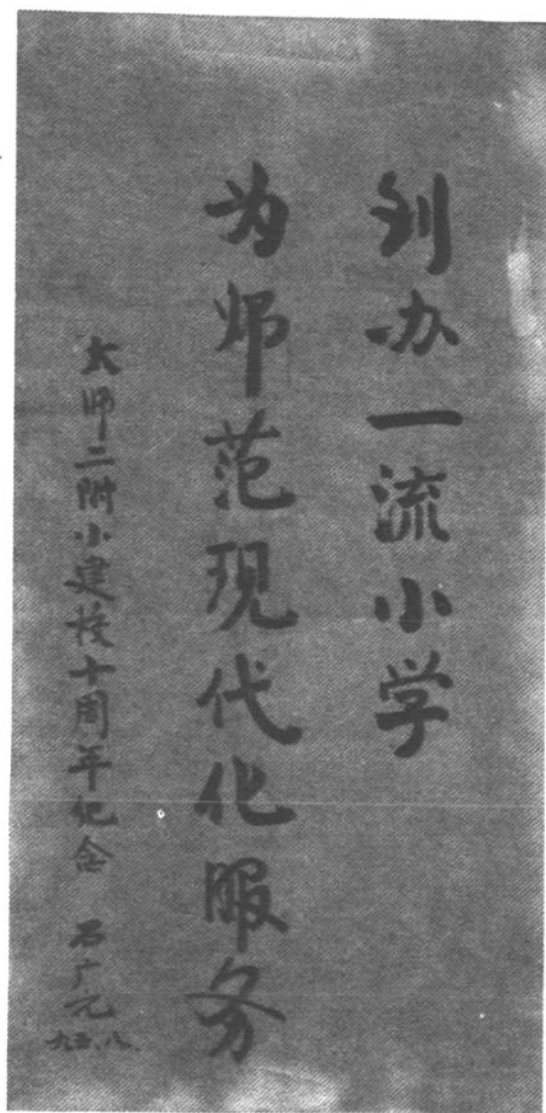 创办一流小学
为师范现代化服务
大师二附小建校十周年纪念 石广元
九五、八、